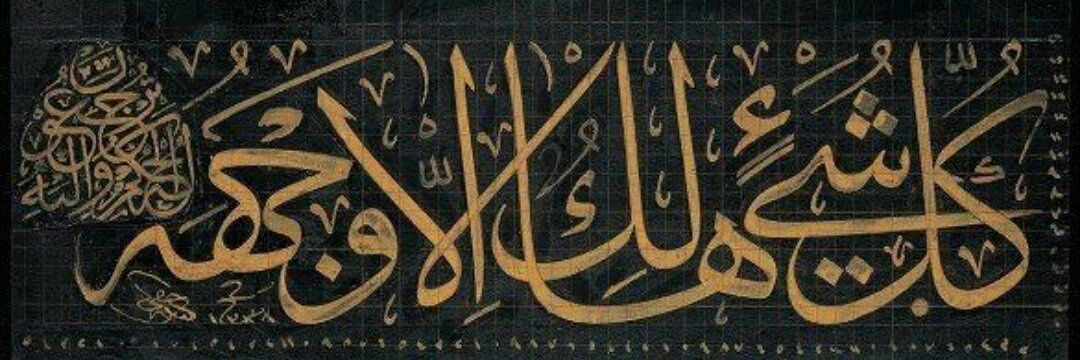 كُلُّ شَيْءٍ هَالِكٌ إِلَّا وَجْهَهُ
لَهُ الْحُكْمُ وَإِلَيْهِ تُرْجَعُونَ